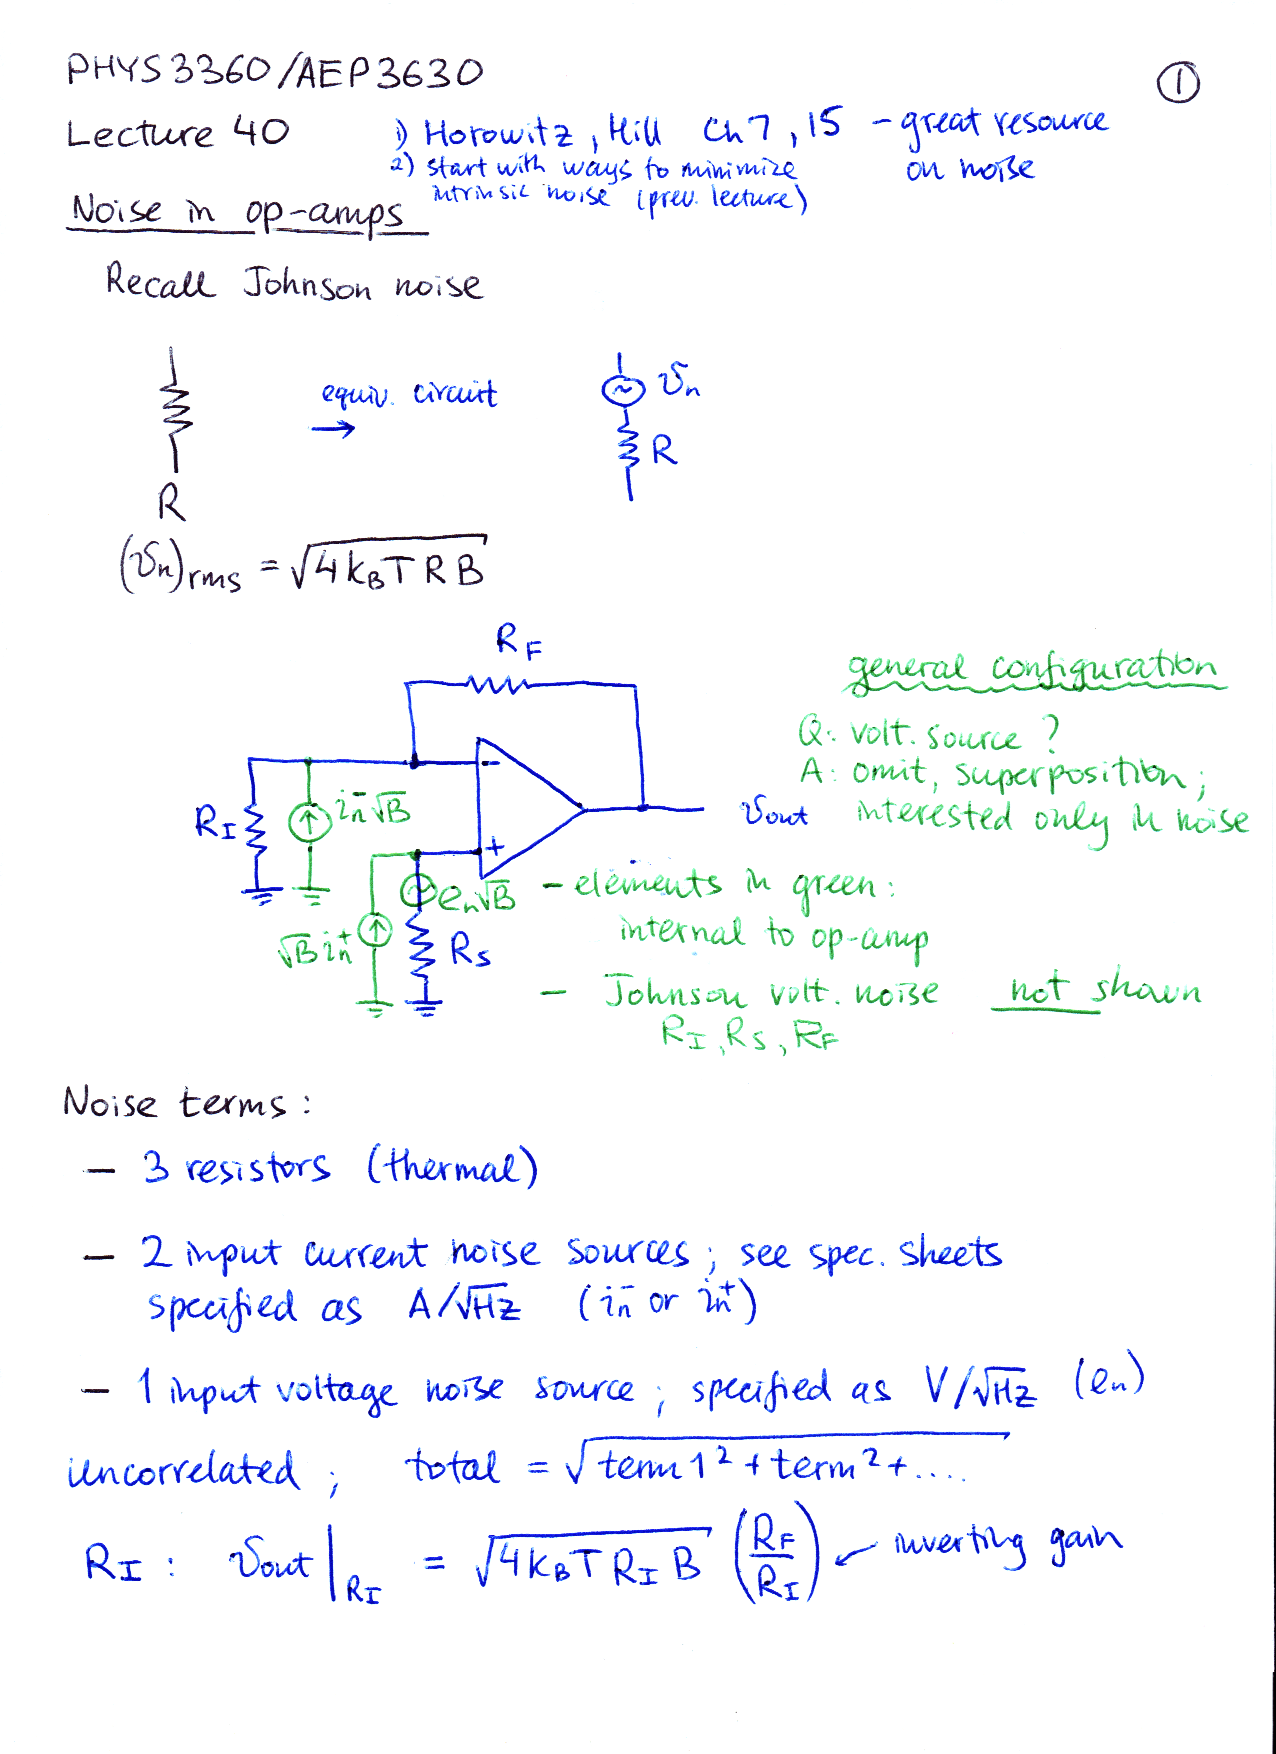 PHYS3360/AEP3630
①
Lecture 40
1) Horowitz, Hill Ch 7, 15 - great resource on noise
2) start with ways to minimize intrinsic noise (prev. lecture)
Noise in op-amps
Recall Johnson noise
R
equiv. circuit
→
vn
R
(vn)rms = √4kBTRB
RF
general configuration
Q: volt. source?
A: omit, superposition;
interested only in noise
RI
in⁻√B
vout
-
+
en√B
√B in⁺
RS
- elements in green:
internal to op-amp
- Johnson volt. noise not shown
RI, RS, RF
Noise terms:
- 3 resistors (thermal)
- 2 input current noise sources; see spec. sheets
specified as A/√Hz (in⁻ or in⁺)
- 1 input voltage noise source; specified as V/√Hz (en)
uncorrelated; total = √term1²+term²+....
RI: vout|RI = √4kBTRIB (RF/RI) ← inverting gain